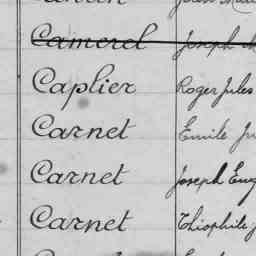 Camerel Joseph
Caplier Roger Jules
Carnet Emile
Carnet Joseph Eug
Carnet Théophile